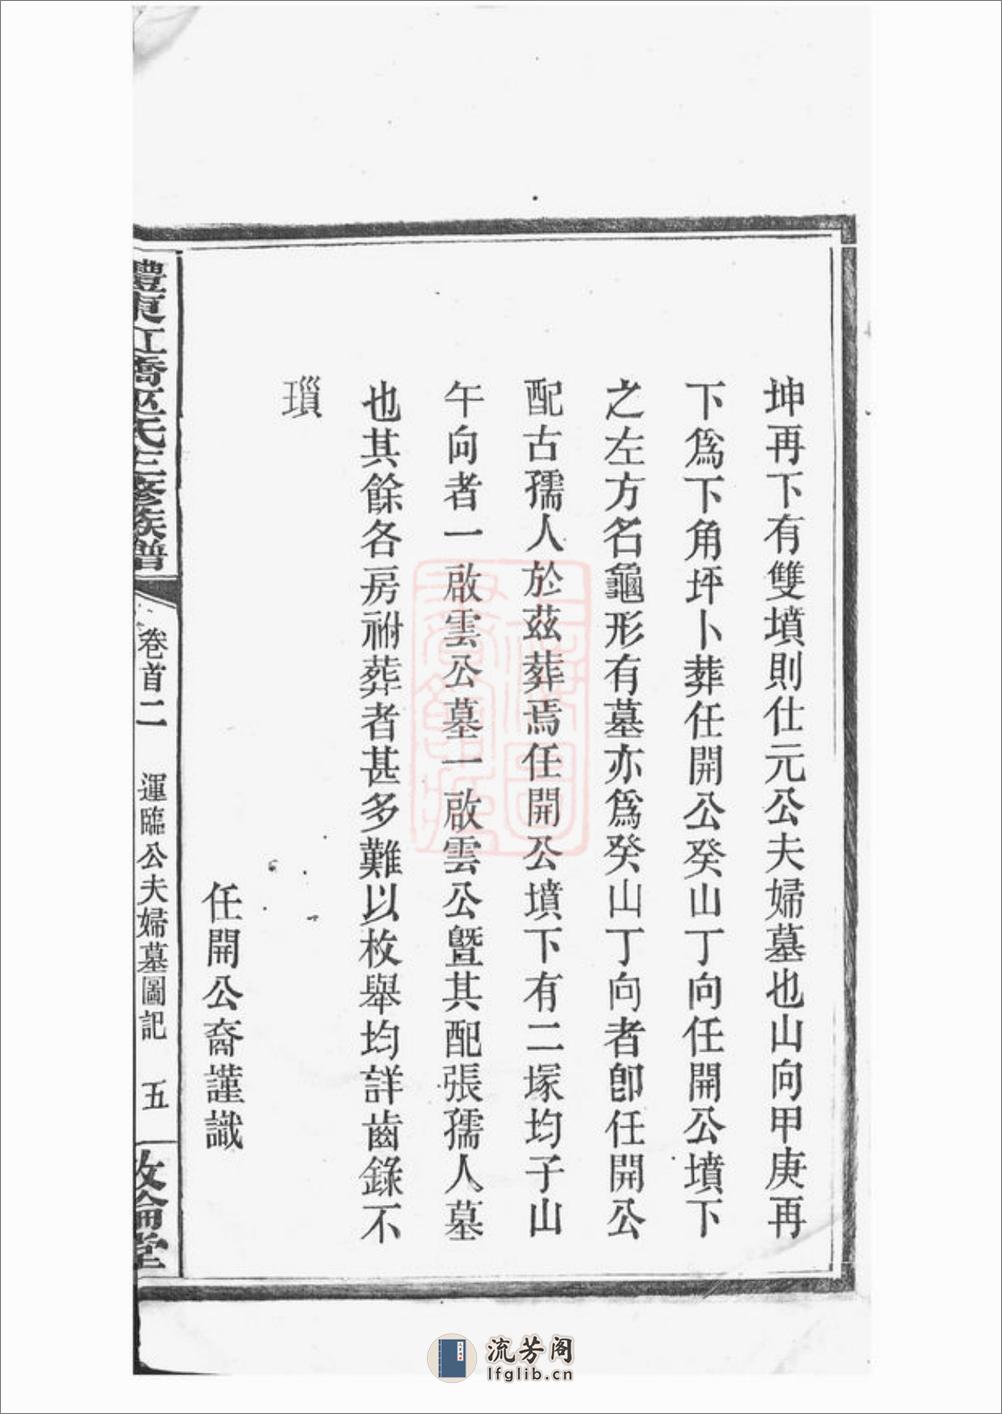 坤再下有雙墳則仕元公夫婦墓也山向甲庚再
下爲下角坪卜葬任開公癸山丁向任開公墳下
之左方名龜形有墓亦爲癸山丁向者卽任開公
配古孺人於茲葬焉任開公墳下有二塚均子山
午向者一啟雲公墓一啟雲公曁其配張孺人墓
也其餘各房祔葬者甚多難以枚舉均詳齒錄不
瑣
任開公裔謹識
醴東江橋巫氏三修族譜
卷首二
運臨公夫婦墓圖記
五
敦倫堂
流芳阁
lfglib.cn